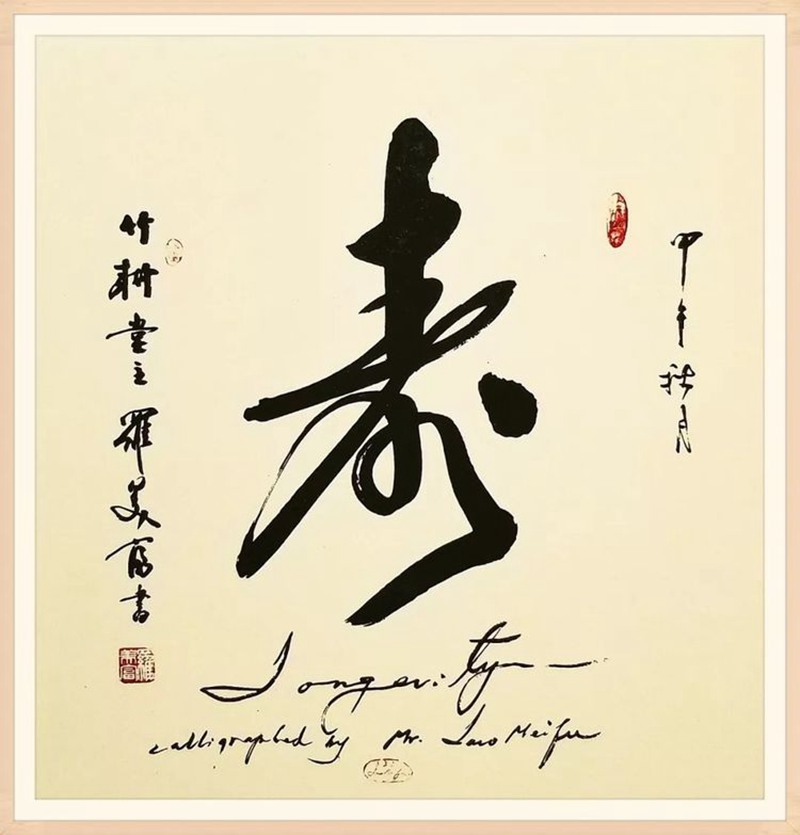 甲午秋月
寿
竹耕堂主羅美富书
Longevity
calligraphed by Mr. Luo Meifu
羅美富